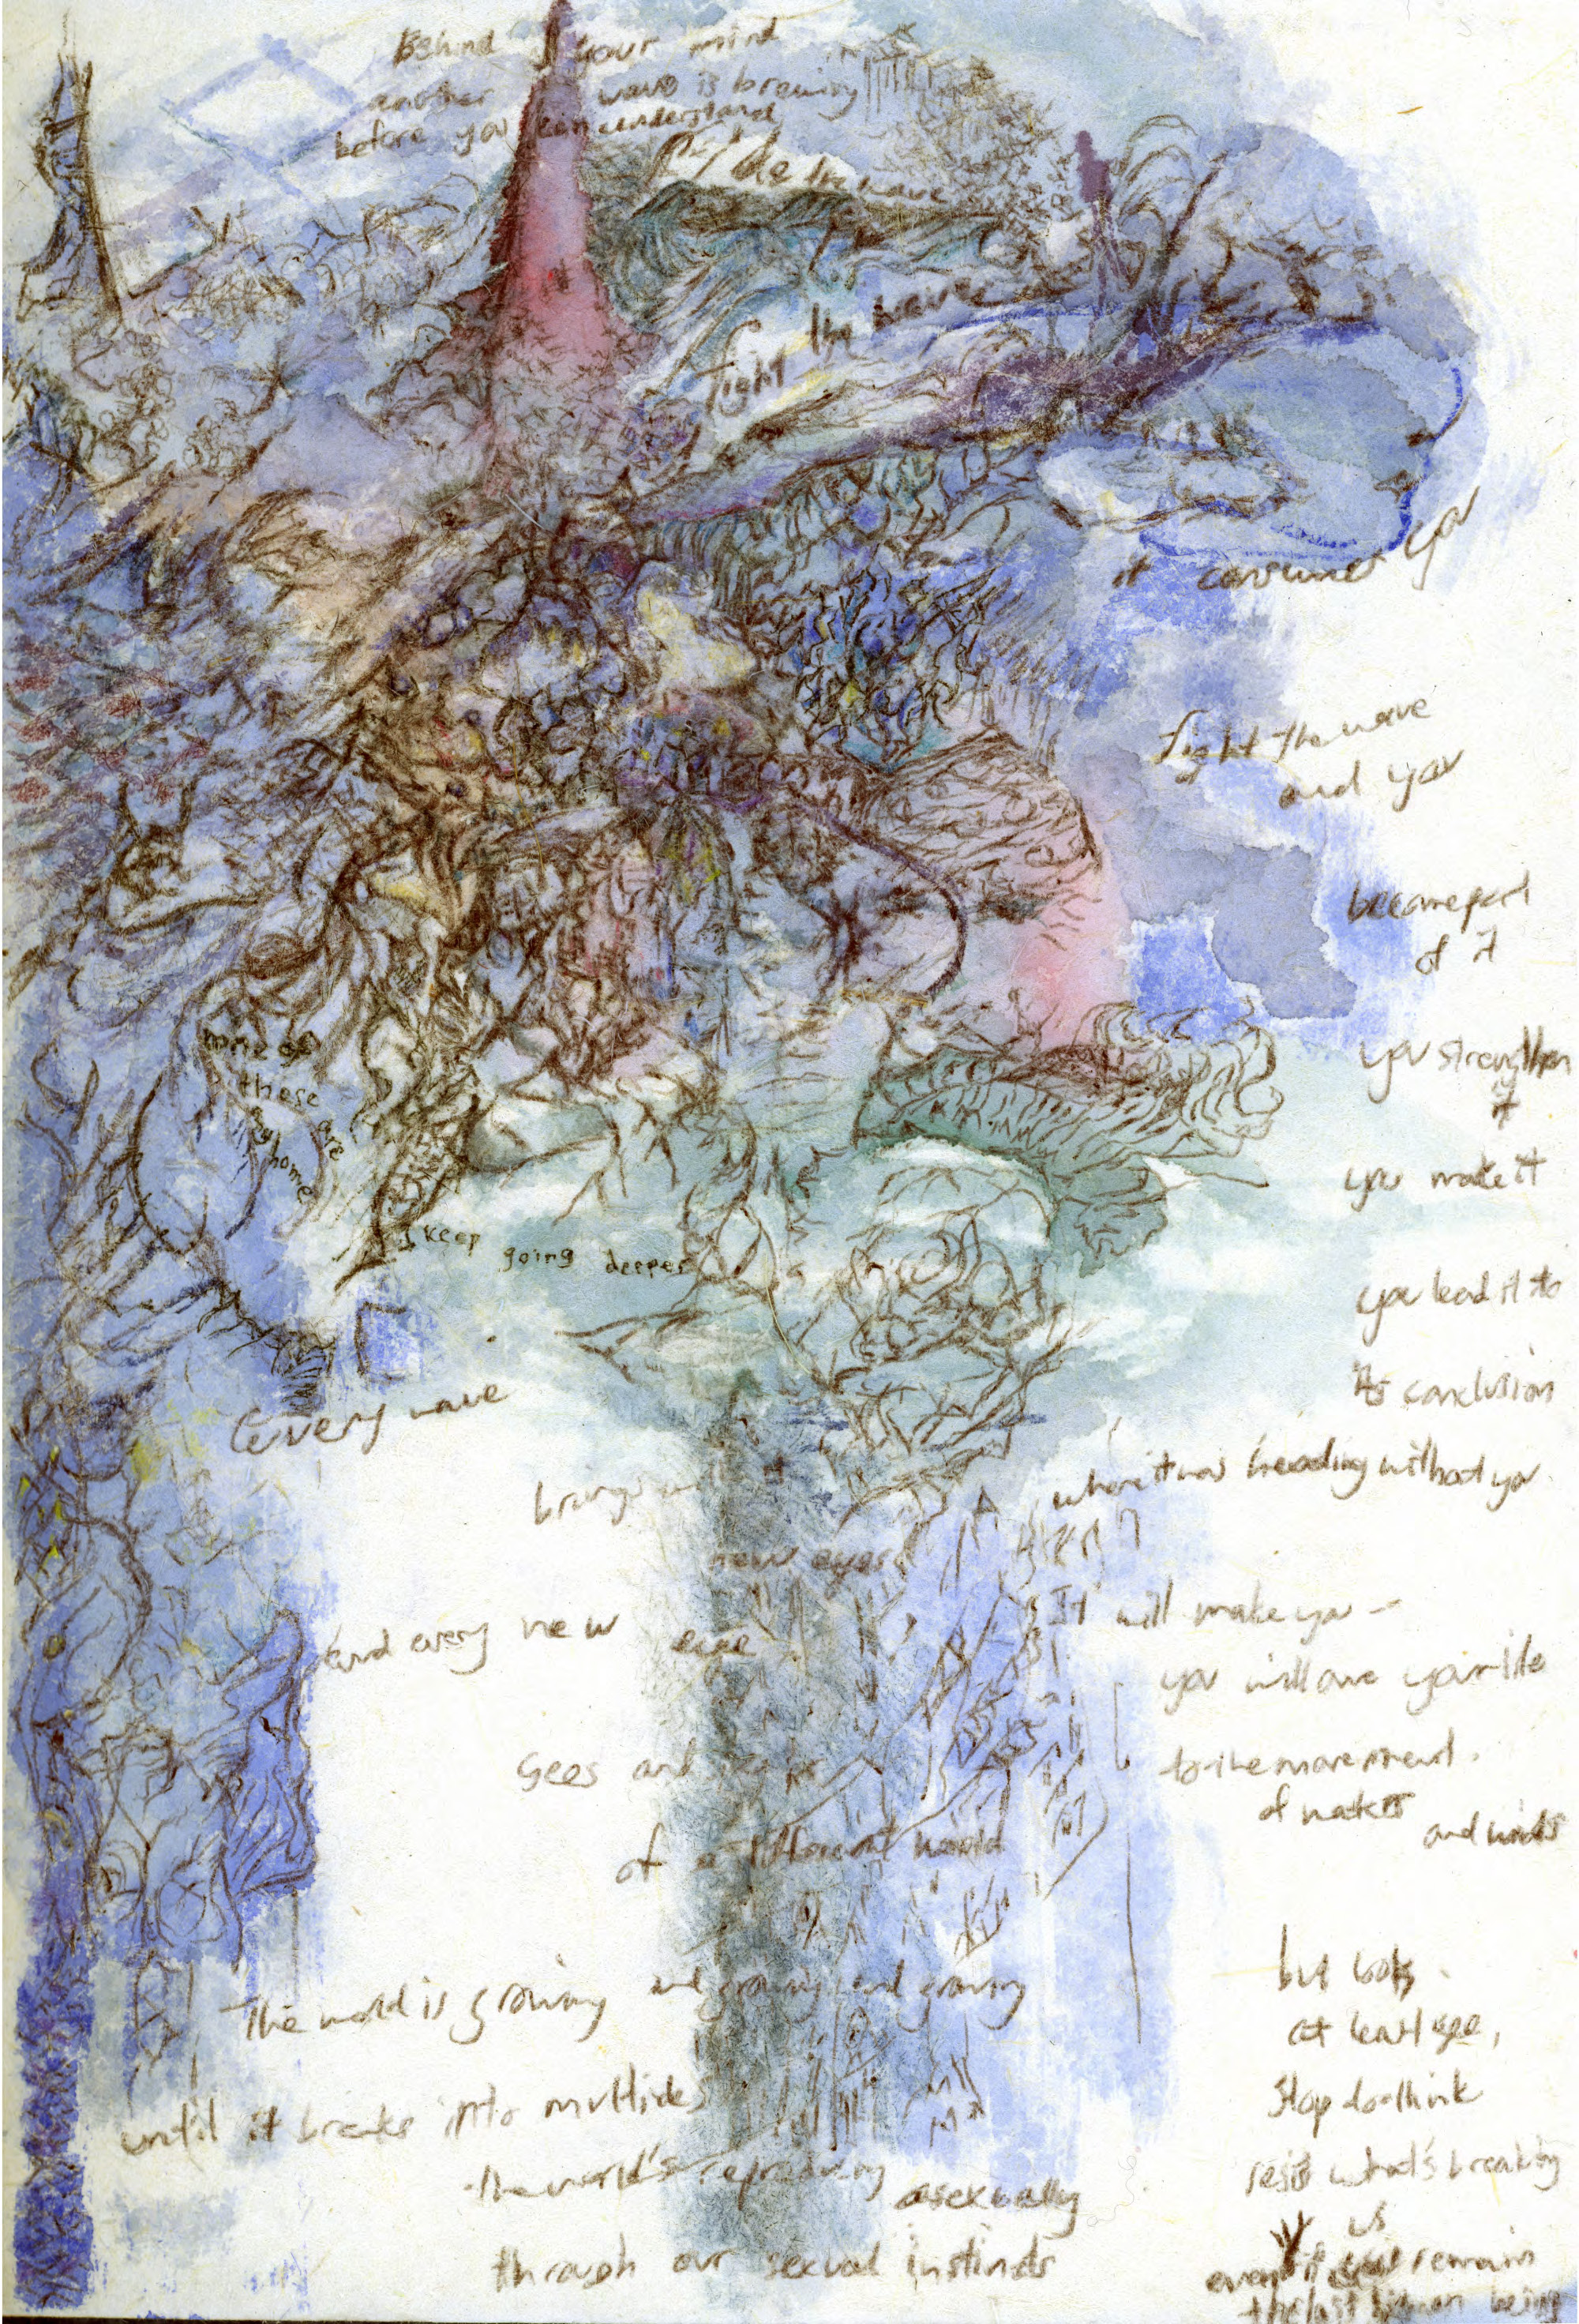 Behind your mind
another wave is brewing
before you can understand
Ride the wave
fight the wave
it consumes you
fight the wave
and you
become part
of it
you strengthen
it
you make it
you lead it to
its conclusion
where it was heading without you
It will make you -
you will owe your life
to the movement
of
and
but look
at least see,
stop to think
resist what's breaking
us
even if you remain
the last human being
none of
these are
my home
I keep going deeper
Every wave
brings
new eyes
and every new eye
sees and
of a different world
The world is growing and growing and growing
until it breaks into multitudes
the world's reproducing asexually
through our sexual instincts